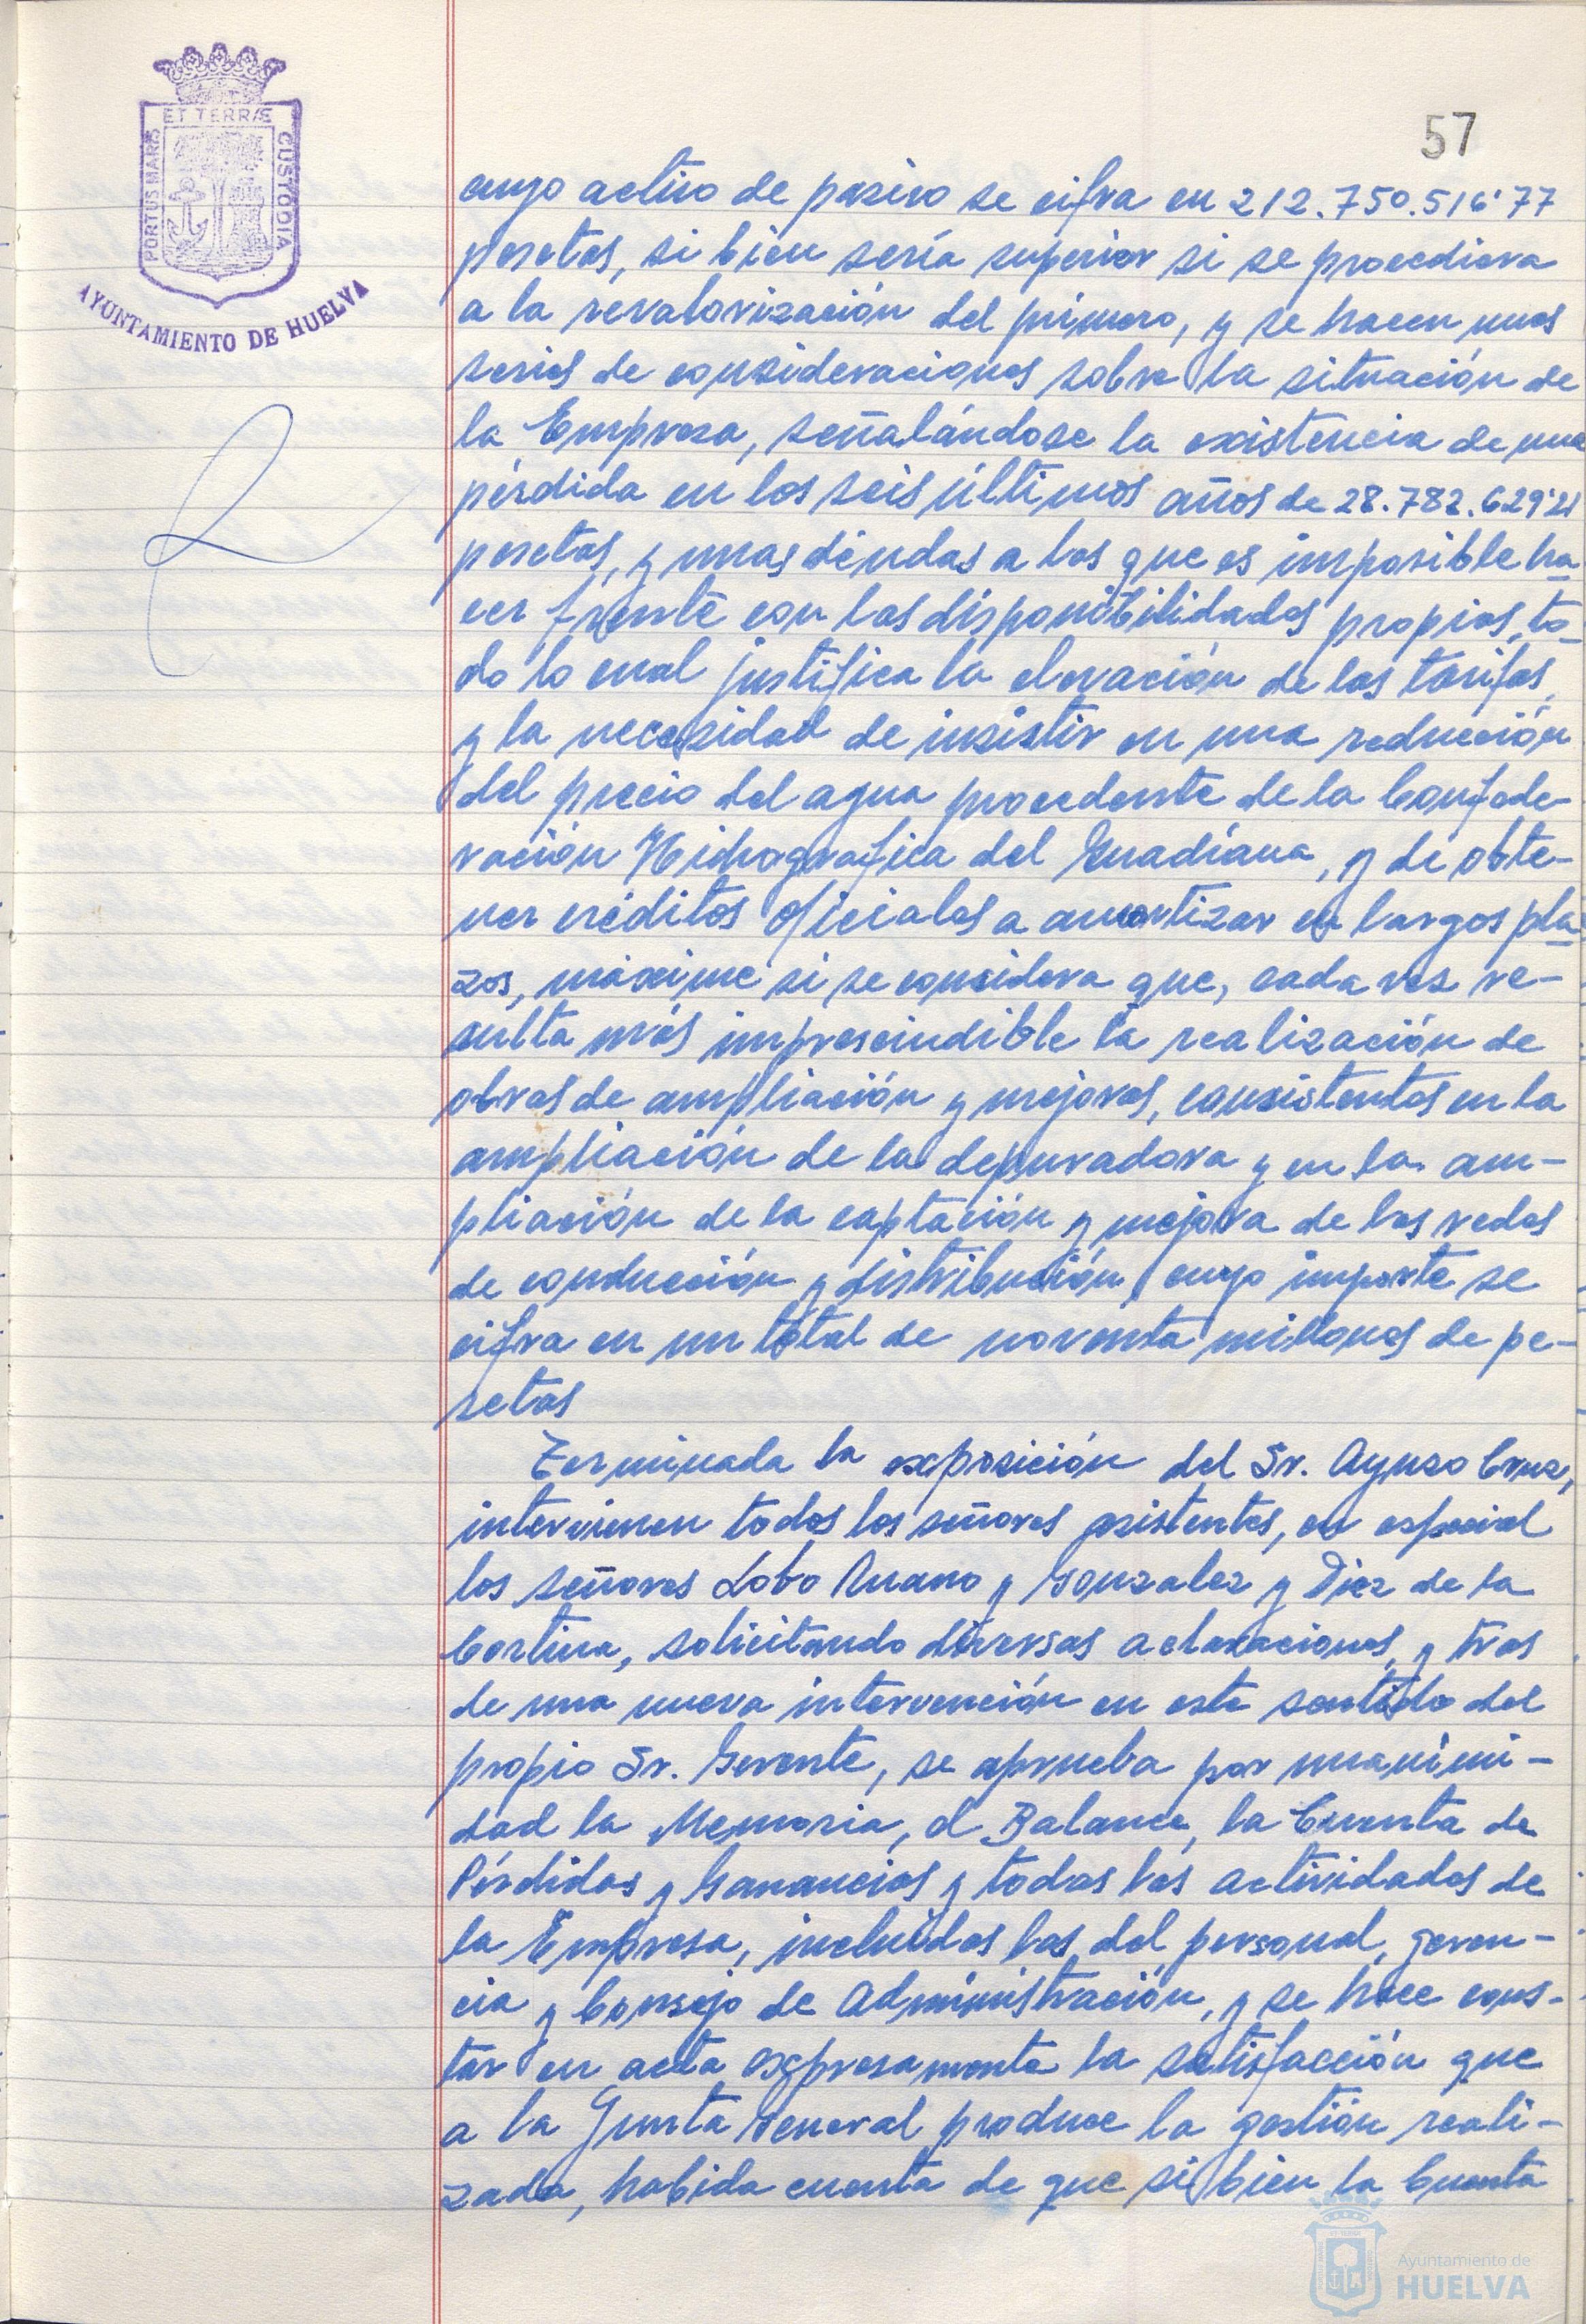 57
ET TERRÆ
PORTUS MARIS
CUSTODIA
AYUNTAMIENTO DE HUELVA
cuyo activo de pasivo se cifra en 212.750.516'77
pesetas, si bien sería superior si se procediera
a la revalorización del primero, y se hacen unas
series de consideraciones sobre la situación de
la Empresa, señalándose la existencia de una
pérdida en los seis últimos años de 28.782.629'21
pesetas, y unas deudas a las que es imposible ha
cer frente con las disponibilidades propias, to-
do lo cual justifica la elevación de las tarifas,
y la necesidad de insistir en una reducción
del precio del agua procedente de la Confede-
ración Hidrografica del Guadiana, y de obte-
ner créditos oficiales a amortizar en largos pla-
zos, máxime si se considera que, cada vez re-
sulta más imprescindible la realización de
obras de ampliación y mejoras, consistentes en la
ampliación de la depuradora y en la am-
pliación de la captación y mejora de las redes
de conducción y distribución, cuyo importe se
cifra en un total de noventa millones de pe-
setas
Terminada la exposición del Sr. Ayuso Cruz,
intervienen todos los señores asistentes, en especial
los señores Lobo Ruano y González y Diez de la
Cortina, solicitando diversas aclaraciones, y tras
de una nueva intervención en este sentido del
propio Sr. Gerente, se aprueba por unanimi-
dad la Memoria, el Balance, la Cuenta de
Pérdidas y Ganancias y todas las actividades de
la Empresa, incluidas las del personal, geren-
cia y Consejo de Administración, y se hace cons-
tar en acta expresamente la satisfacción que
a la Junta General produce la gestión reali-
zada, habida cuenta de que si bien la Cuenta
Ayuntamiento de
HUELVA